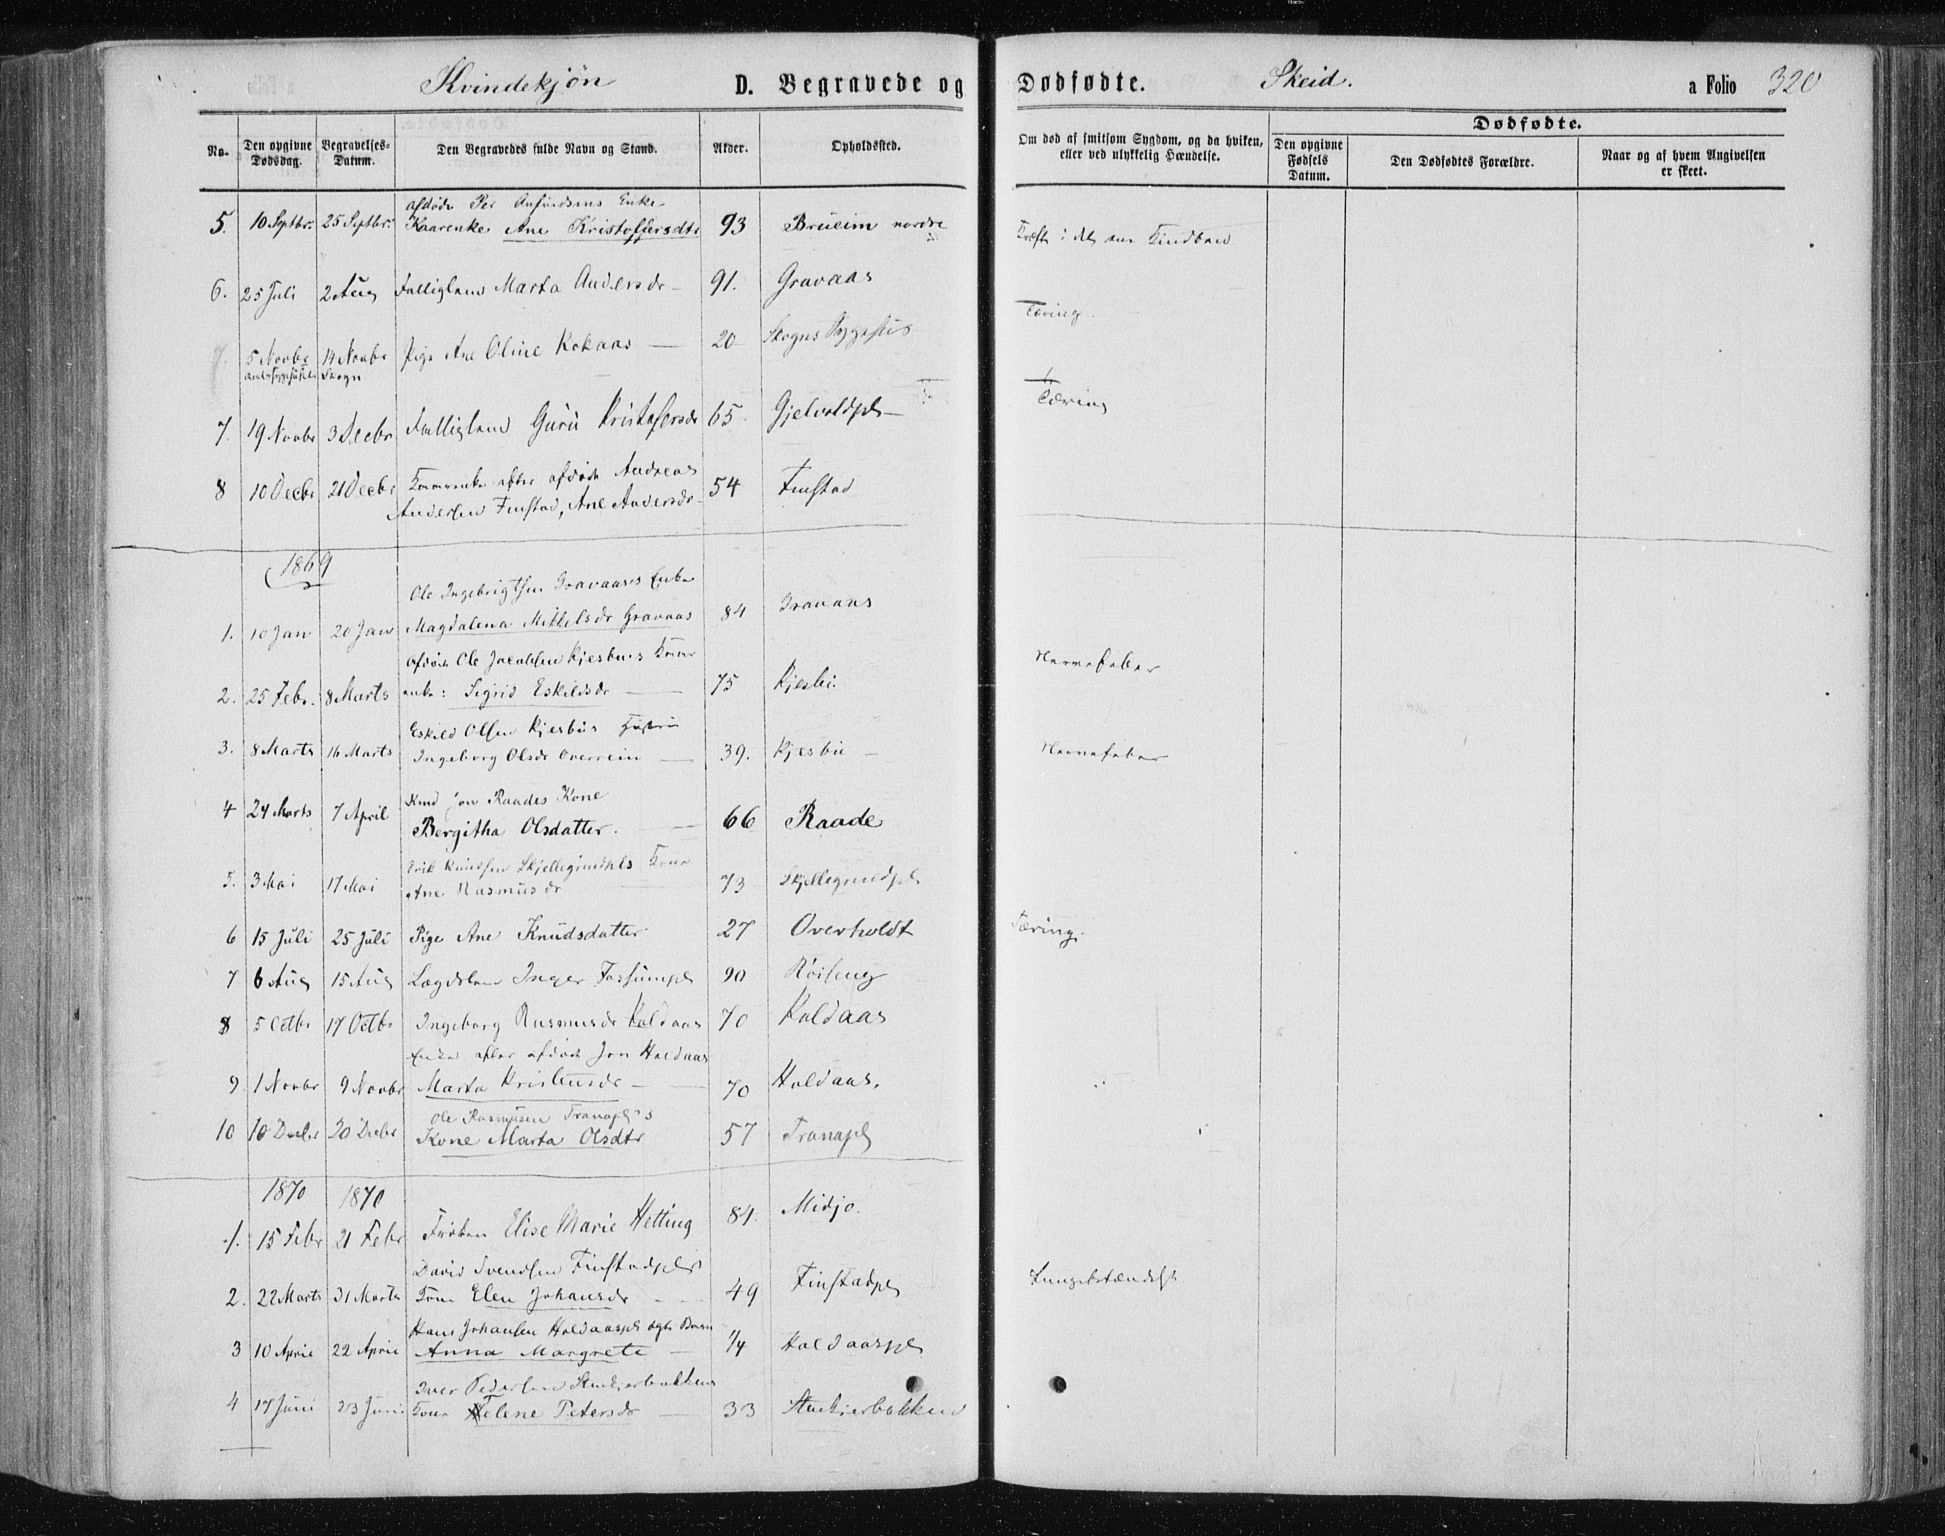 Kvindekjøn D. Begravede og Dødfødte. Skeid. a Folio 320
No. Den opgivne Dødsdag. Begravelses-Datum. Den Begravedes fulde Navn og Stand. Alder. Opholdssted. Om død af smitsom Sygdom, og da hviken, eller ved ulykkelig Hændelse. Dødfødte. Den opgivne Fødsels Datum. Den Dødfødtes Forældre. Naar og af hvem Angivelsen er skeet.
afdøde Per Enke
5. 10 Septbr. 25 Septbr. Kaarenke Ane Kristoffersdtr 93 Brueim nordre
Kræft i det
6. 25 Juli 2 Aug Fattiglem Marta Andersdr 91. Gravaas
Tæring.
7. 5 Novbr 14 Novbr Pige Ane Oline Kokaas 20 Skogns Sygehus
Skogn
Tæring
7. 19 Novbr 3 Decbr Fattiglem Guru Kristofersdr 65. Gjelvoldpl
8 10 Decbr 21 Decbr Kaarenke efter afdøde Andreas 54 Finstad
Andersen Finstad, Ane Andersdr
1869
Ole Ingebrigtsen Gravaas's Enke
1. 10 Jan 20 Jan Magdalena Mikkelsdr Gravaas 84 Gravaas
afdøde Ole Jacobsen Kjesbus Kaar
Nervefeber
2. 25 Febr. 8 Marts enke: Sigrid Eskildsdr 75 Kjesbu.
Eskild Olsen Kjesbus Hustru
3. 8 Marts 16 Marts Ingeborg Olsdr Overrein 39. Kjesbu Nervefeber
Jon Raades Kone
4 24 Marts 7 April Bergitha Olsdatter. 66 Raade
Erik Knudsen Skjellegrindpls Kone
5. 3 Mai 17 Mai Ane Rasmusdr 73 Skjellegrindpl
6 15 Juli 25 Juli Pige Ane Knudsdatter 27 Overholdt Tæring.
7 6 Aug 15 Aug Lægdslem Inger Fossumpl 90 Røiseng
8 5 Octbr 17 Octbr Ingeborg Rasmusdr Koldaas 70 Koldaas
Enke efter afdøde Jon Holdaas
9. 1 Novbr 9 Novbr Marta Kristensdr 70 Holdaas.
Ole Rasmusen Tranapl's
10 10 Decbr 20 Decbr Kone Marta Olsdtr 57 Tranapl
1870 1870
1. 15 Febr 21 Febr Frøken Elise Marie Hetting 84. Midjo.
David Svendsen Finstadpls
2. 22 Marts 31 Marts Kone Elen Johansdr 49 Finstadpl Lungebetændelse
Hans Johansen Holdaaspl ægte Barn
3 10 April 22 April Anna Margrete 1/4 Holdaaspl
Iver Pedersen
4 17 Juni 23 Juni Kone Helene Petersdr 33